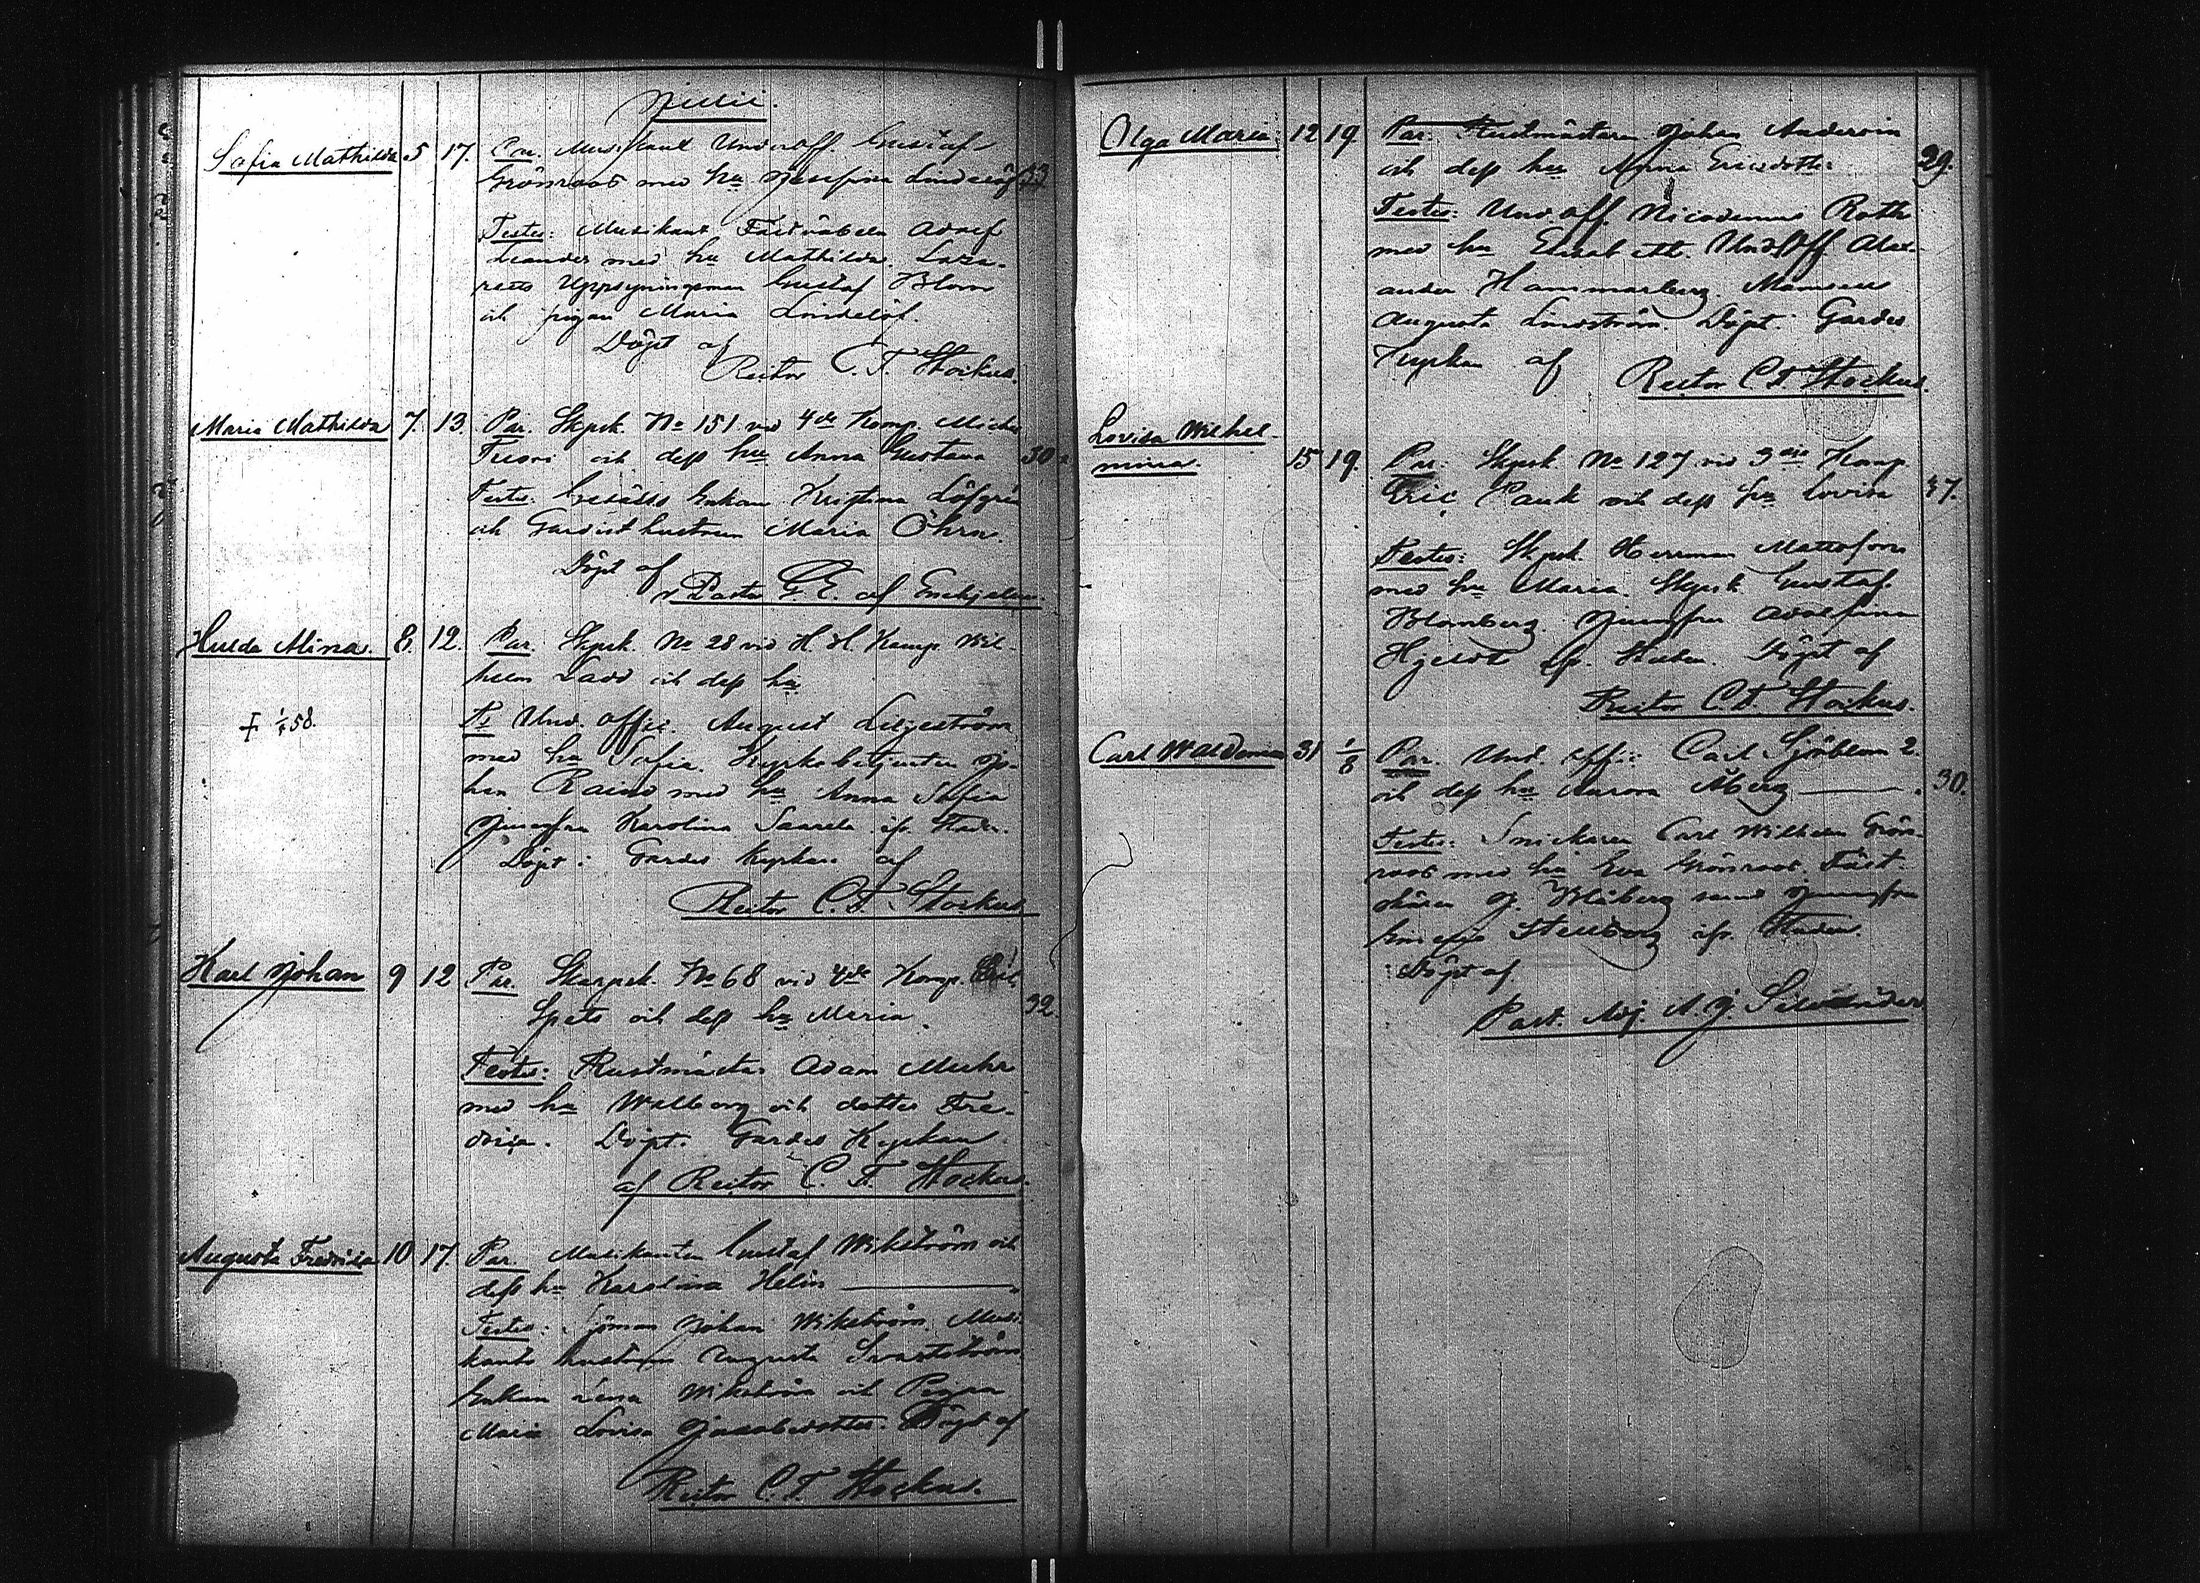 Julii.
Sofia Mathilda 5 17. Par. Musikant Underoff. Gustaf
Grönroos med hu Josefina Lindelöf 33
Testes: Musikant Fältväbeln Adolf
Leander med hu Mathilda. Laza-
retts Uppsyningsman Gustaf Blom
och pigan Maria Lindelöf.
Döpt af
Rector C. F. Stockus.
Maria Mathilda 7. 13. Par. Skpsk. No 151 vid 4de Komp. Michel
och dess hu Anna Gustava 30
Testes: Enkan Kristina Löfgrén
och Gardist hustrun Maria Öhrn.
Döpt af
v Pastor G. E. af Enehjelm.
Hulda Mina. 8. 12. Par. Skpsk. No 28 vid H. H. Komp. Wil-
helm Ladd och dess hu
Ts Und. offic. August Liljeström
med hu Sofia. Kyrkobetjenten Jo-
han med hu Anna Sofia
Jungfru Karolina Saarela ifr. Staden.
Döpt i Gardes Kyrkan af
Rector C. F. Stockus
Karl Johan 9 12 Par. Skarpsk. No 68 vid 4de Komp.
Spets och dess hu Maria 32.
Testes: Rustmästar Adam Muhr
med hu Walborg och dotter Fre-
drica. Döpt i Gardes Kyrkan
af Rector C. F. Stockus.
Augusta Fredrica 10 17. Par. Musikanten Gustaf Wikström och
dess hu Karolina Helin
Testes: Sjöman Johan Wikström, Musi-
kants hustrun Augusta Svartström
Enkan Lena Wikström och Pigan
Maria Lovisa Jacobsdotter. Döpt af
Rector C. F. Stockus.
Olga Maria. 12 19. Par. Rustmästaren Johan Anderson
och dess hu Anna Ericsdotter 29.
Testes: Und. off. Nicodemus Roth
med hu Elisabeth. Und. Off. Alex-
ander Hammarberg. Mamsell
Augusta Lindström. Döpt i Gardes
Kyrkan af Rector C. F. Stockus.
Lovisa Wilhel-
mina. 15 19. Par. Skpsk. No 127 vid 3die Komp
Eric Pauk och dess hu Lovisa 37.
Testes: Skpsk. Herrman Mattsson
med hu Maria. Skpsk. Gustaf
Blomberg. Jungfru Adolfina
Hjeldt ifr. Staden. Döpt af
Rector C. F. Stockus.
Carl Waldemar 31 1/8 Par. Und. offic. Carl Sjöblom 2.
och dess hu Aurora Åberg 30.
Testes: Snickaren Carl Wilhelm Grön-
roos med hu Eva Grönroos.
J. Blåberg samt Jungfru
Stenberg ifr. Staden.
Döpt af
Past. Adj. A. J.
+ 1/5 58.